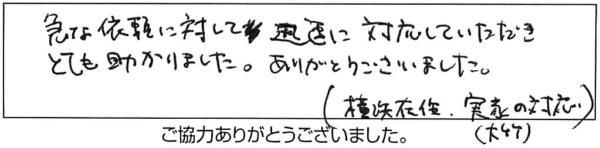 急な依頼に対して迅速に対応していただき
とても助かりました。ありがとうございました。
(横浜在住．実家の対応)
ご協力ありがとうございました。